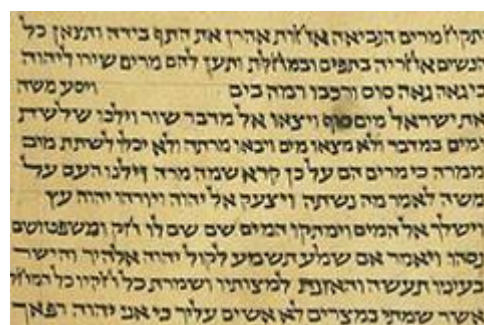 ותקח מרים הנביאה אחות אהרן את התף בידה ותצאן כל
הנשים אחריה בתפים ובמחלת ותען להם מרים שירו ליהוה
כי גאה גאה סוס ורכבו רמה בים ויסע משה
את ישראל מים סוף ויצאו אל מדבר שור וילכו שלשת
ימים במדבר ולא מצאו מים ויבאו מרתה ולא יכלו לשתת מים
ממרה כי מרים הם על כן קרא שמה מרה וילנו העם על
משה לאמר מה נשתה ויצעק אל יהוה ויורהו יהוה עץ
וישלך אל המים וימתקו המים שם שם לו חק ומשפט ושם
נסהו ויאמר אם שמע תשמע לקול יהוה אלהיך והישר
בעיניו תעשה והאזנת למצותיו ושמרת כל חקיו כל המחלה
אשר שמתי במצרים לא אשים עליך כי אני יהוה רפאך